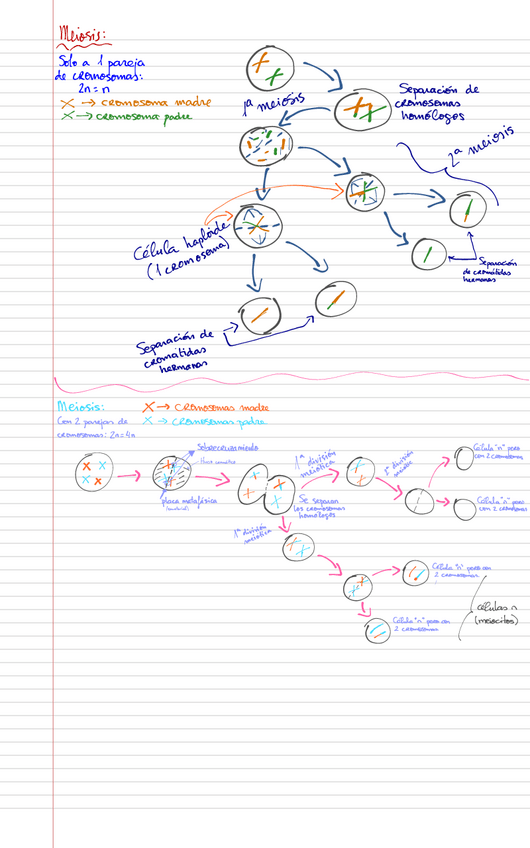 Meiosis:
Solo a 1 pareja
de cromosomas:
2n = n
X → cromosoma madre
X → cromosoma padre
1ª meiosis
Separación de
cromosomas
homólogos
2ª meiosis
Célula haploide
(1 cromosoma)
Separación
de cromátidas
hermanas
Separación de
cromátidas
hermanas
Meiosis:
X → cromosomas madre
Con 2 parejas de
cromosomas: 2n=4n
X → cromosomas padre
Sobrecruzamiento
placa metafásica
1ª división
meiótica
Se separan
los cromosomas
homólogos
2ª división
Célula "n" pero
con 2 cromosomas
Célula "n" pero
con 2 cromosomas
1ª división
meiótica
Célula "n" pero con
2 cromosomas
Célula "n" pero con
2 cromosomas
células n
(meiocitos)